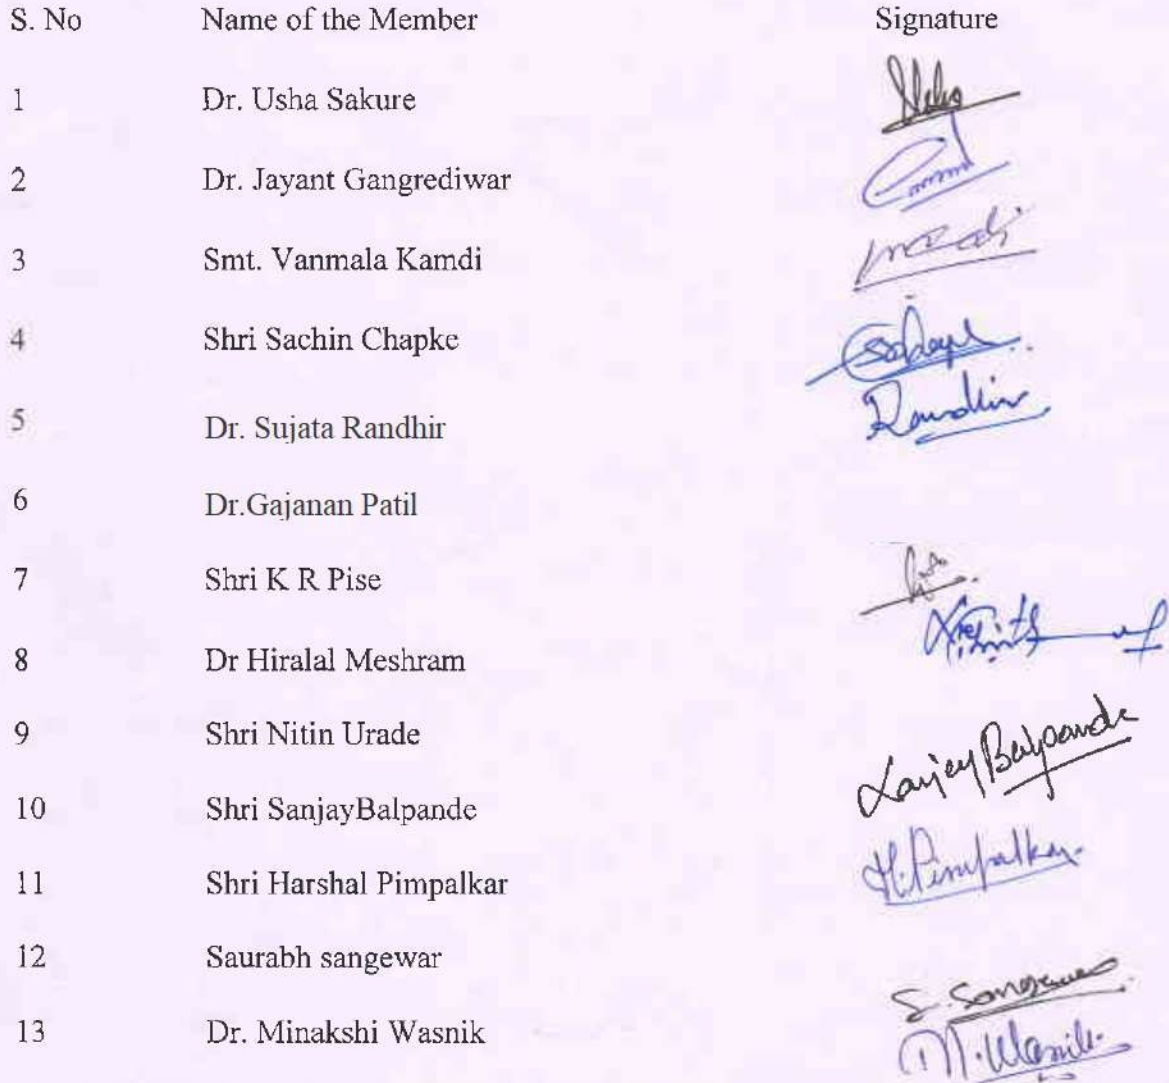 S. No Name of the Member Signature
1 Dr. Usha Sakure
2 Dr. Jayant Gangrediwar
3 Smt. Vanmala Kamdi
4 Shri Sachin Chapke
5 Dr. Sujata Randhir Randhir
6 Dr.Gajanan Patil
7 Shri K R Pise
8 Dr Hiralal Meshram
9 Shri Nitin Urade
10 Shri SanjayBalpande Sanjay Balpande
11 Shri Harshal Pimpalkar H.Pimpalkar
12 Saurabh sangewar
13 Dr. Minakshi Wasnik M.Wasnik